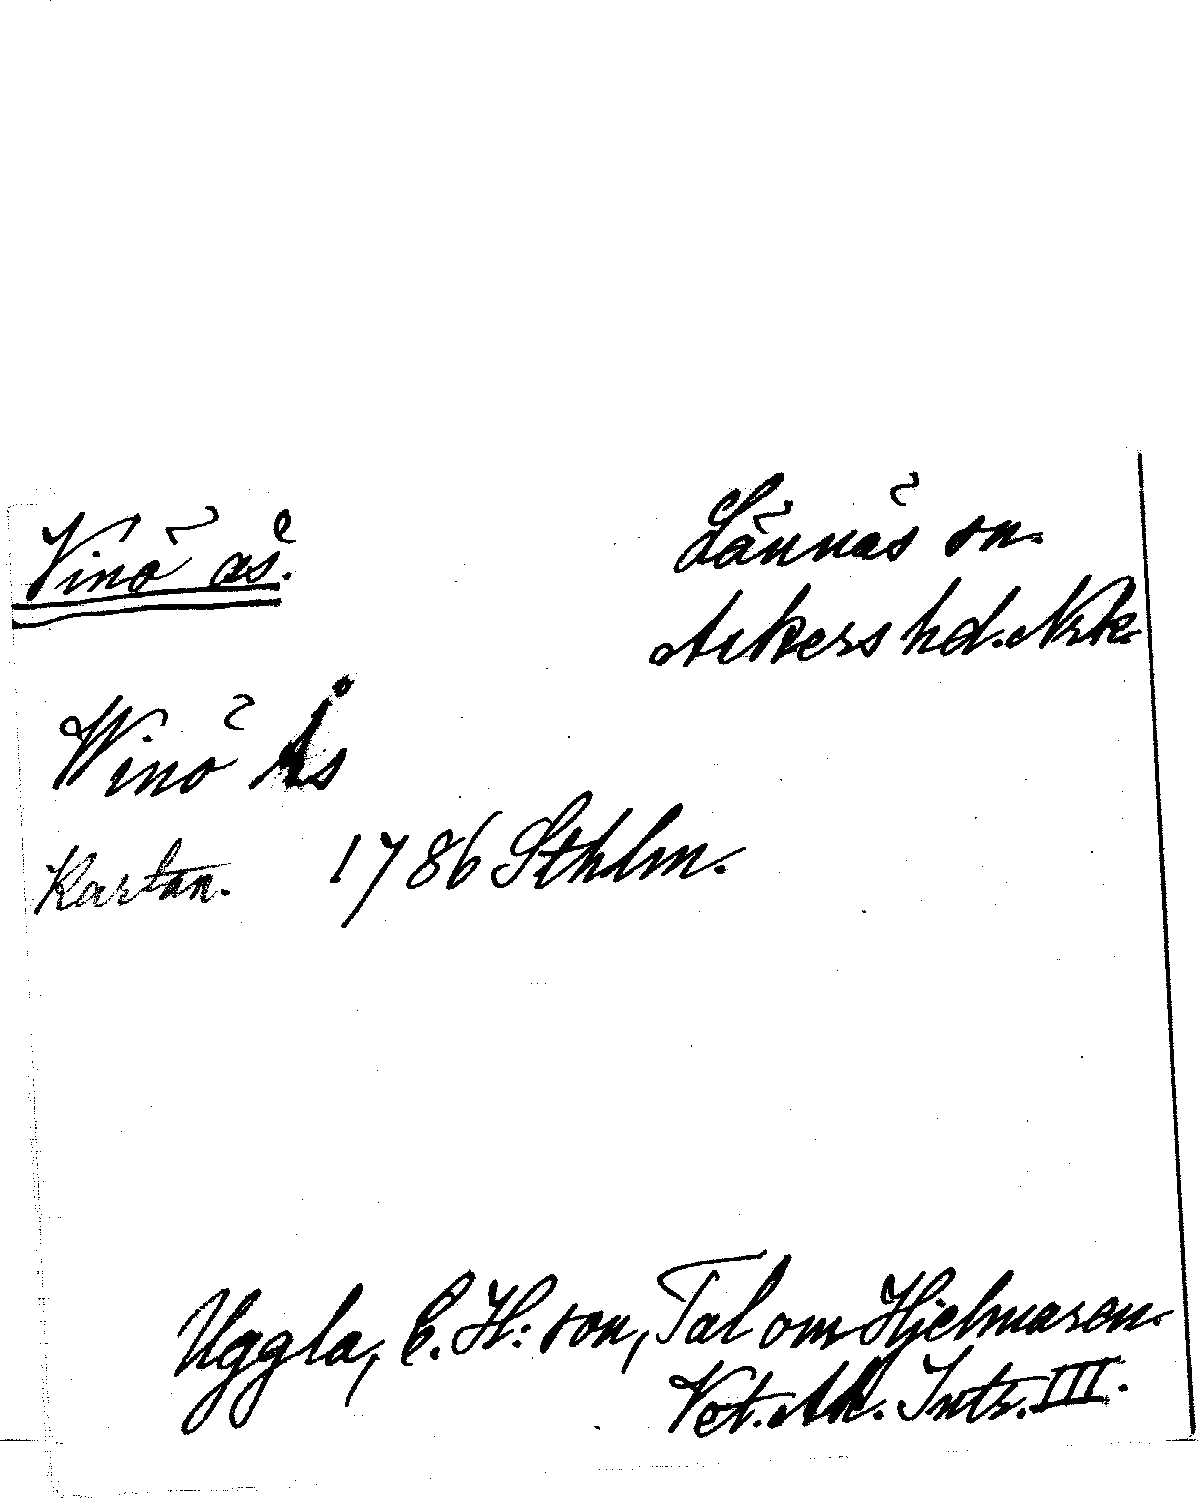 Vinö ås.
Lännäs sn.
Askers hd. Nrk
Winö Ås
Kartan. 1786 Sthlm.
Uggla, C. H:son, Tal om Hjelmaren.
Vet. Ak. Intr. III.